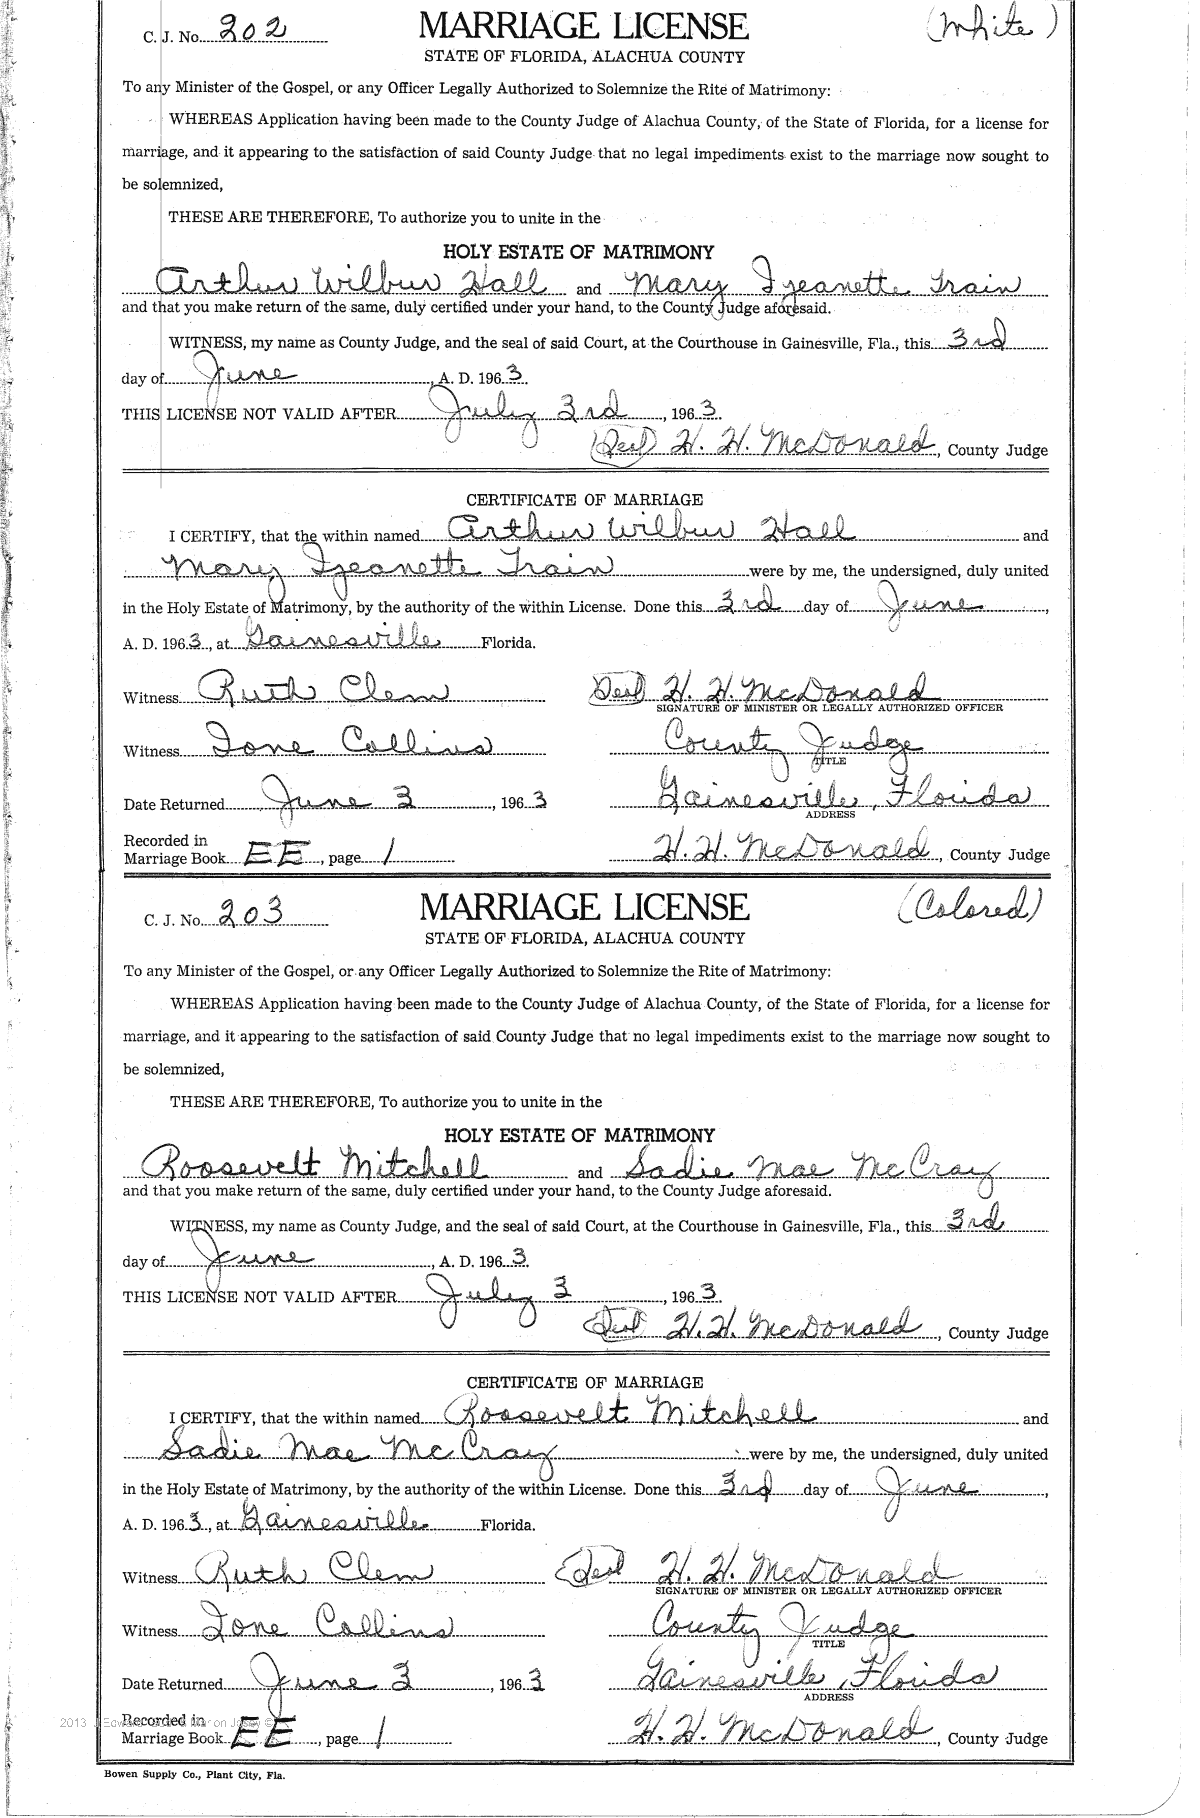 C. J. No. 202 MARRIAGE LICENSE (White)
STATE OF FLORIDA, ALACHUA COUNTY
To any Minister of the Gospel, or any Officer Legally Authorized to Solemnize the Rite of Matrimony:
WHEREAS Application having been made to the County Judge of Alachua County, of the State of Florida, for a license for
marriage, and it appearing to the satisfaction of said County Judge that no legal impediments exist to the marriage now sought to
be solemnized,
THESE ARE THEREFORE, To authorize you to unite in the
HOLY ESTATE OF MATRIMONY
Arthur Wilbur Hall and Mary Train
and that you make return of the same, duly certified under your hand, to the County Judge aforesaid.
WITNESS, my name as County Judge, and the seal of said Court, at the Courthouse in Gainesville, Fla., this 3rd
day of June, A. D. 1963.
THIS LICENSE NOT VALID AFTER July 3rd, 1963.
(Seal) H. H. McDonald, County Judge
CERTIFICATE OF MARRIAGE
I CERTIFY, that the within named Arthur Wilbur Hall and
Mary Train were by me, the undersigned, duly united
in the Holy Estate of Matrimony, by the authority of the within License. Done this 3rd day of June,
A. D. 1963, at Gainesville Florida.
Witness Ruth Clem (Seal) H. H. McDonald
SIGNATURE OF MINISTER OR LEGALLY AUTHORIZED OFFICER
Witness Ione Collins County Judge
TITLE
Date Returned June 3, 1963 Gainesville, Florida
ADDRESS
Recorded in
Marriage Book EE, page 1 H. H. McDonald, County Judge
C. J. No. 203 MARRIAGE LICENSE (Colored)
STATE OF FLORIDA, ALACHUA COUNTY
To any Minister of the Gospel, or any Officer Legally Authorized to Solemnize the Rite of Matrimony:
WHEREAS Application having been made to the County Judge of Alachua County, of the State of Florida, for a license for
marriage, and it appearing to the satisfaction of said County Judge that no legal impediments exist to the marriage now sought to
be solemnized,
THESE ARE THEREFORE, To authorize you to unite in the
HOLY ESTATE OF MATRIMONY
Roosevelt Mitchell and Sadie Mae McCray
and that you make return of the same, duly certified under your hand, to the County Judge aforesaid.
WITNESS, my name as County Judge, and the seal of said Court, at the Courthouse in Gainesville, Fla., this 3rd
day of June, A. D. 1963.
THIS LICENSE NOT VALID AFTER July 3, 1963.
(Seal) H. H. McDonald, County Judge
CERTIFICATE OF MARRIAGE
I CERTIFY, that the within named Roosevelt Mitchell and
Sadie Mae McCray were by me, the undersigned, duly united
in the Holy Estate of Matrimony, by the authority of the within License. Done this 3rd day of June,
A. D. 1963, at Gainesville Florida.
Witness Ruth Clem (Seal) H. H. McDonald
SIGNATURE OF MINISTER OR LEGALLY AUTHORIZED OFFICER
Witness Ione Collins County Judge
TITLE
Date Returned June 3, 1963 Gainesville, Florida
ADDRESS
2013
Recorded in
Marriage Book EE, page 1 H. H. McDonald, County Judge
Bowen Supply Co., Plant City, Fla.